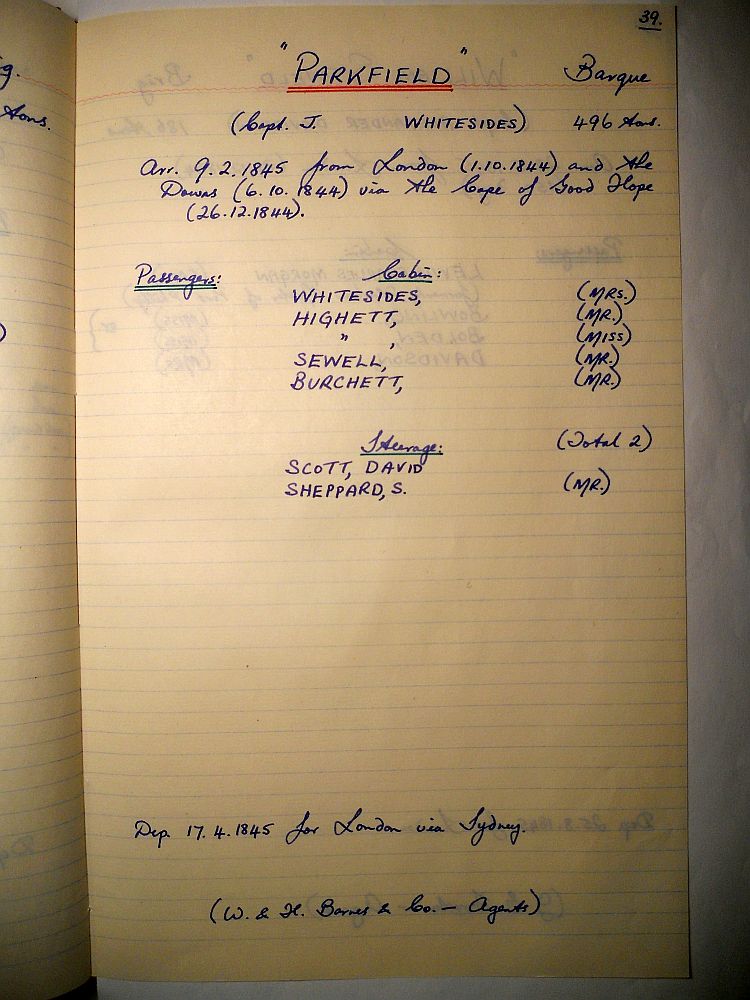 39.
"PARKFIELD" Barque
(Capt. J. WHITESIDES) 496 tons.
Arr. 9.2.1845 from London (1.10.1844) and the
Downs (6.10.1844) via the Cape of Good Hope
(26.12.1844).
Passengers: Cabin:
WHITESIDES, (MRS.)
HIGHETT, (MR.)
" , (MISS)
SEWELL, (MR.)
BURCHETT, (MR.)
Steerage: (Total 2)
SCOTT, DAVID
SHEPPARD, S. (MR.)
Dep. 17.4.1845 for London via Sydney.
(W. & H. Barnes & Co. — Agents)
tons.